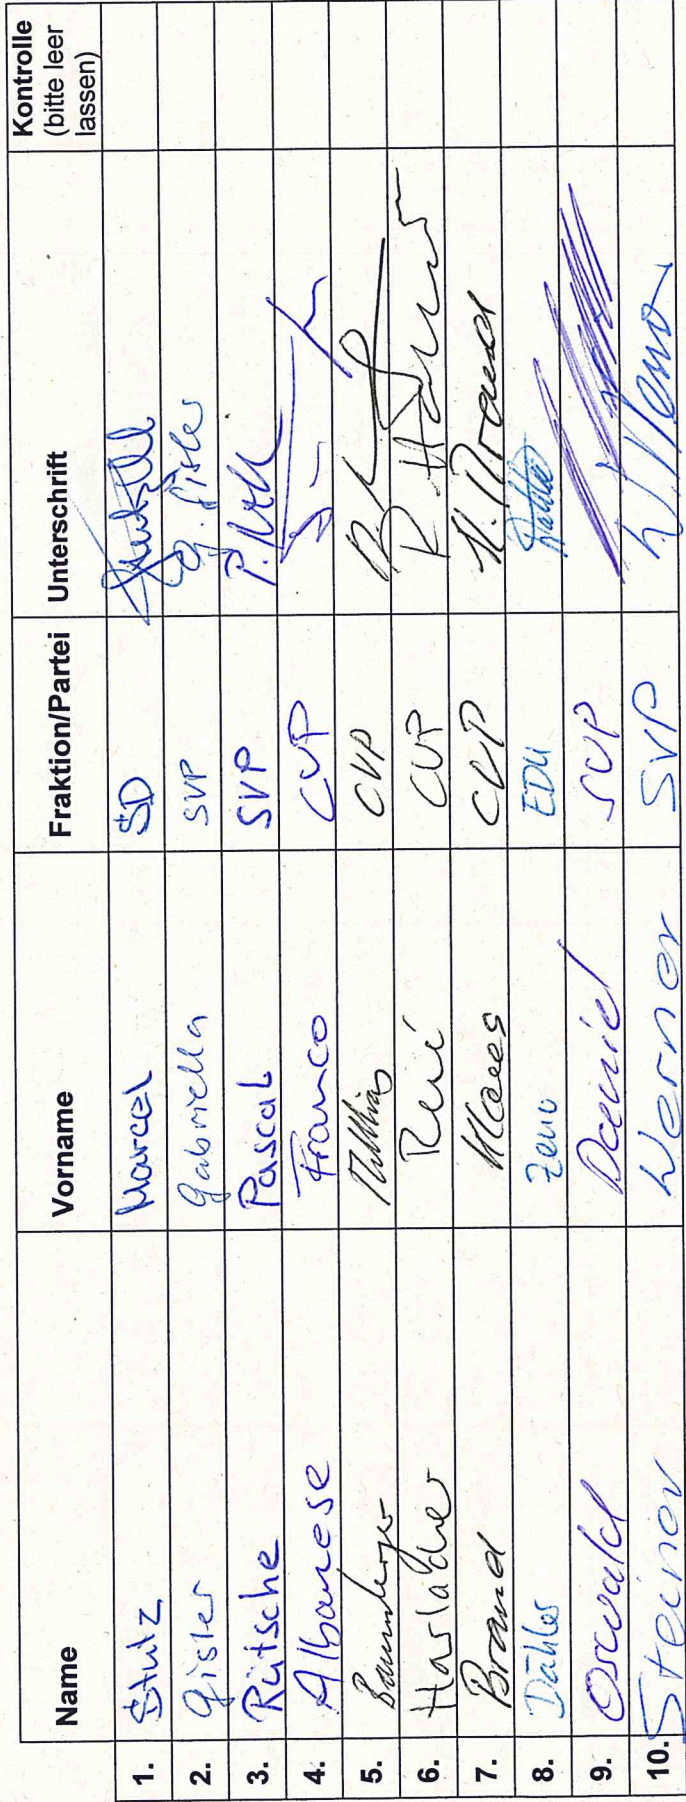 Name Vorname Fraktion/Partei Unterschrift Kontrolle (bitte leer lassen)
1. Stutz Marcel SD
2. Gisler Gabriella SVP G. Gisler
3. Rütsche Pascal SVP
4. Albanese Franco CVP
5. Baumberger CVP
6. Harlacher René CVP
7. Brand Klaus CVP K. Brand
8. Dähler Zeno EDU Dähler
9. Oswald Daniel SVP
10. Steiner Werner SVP